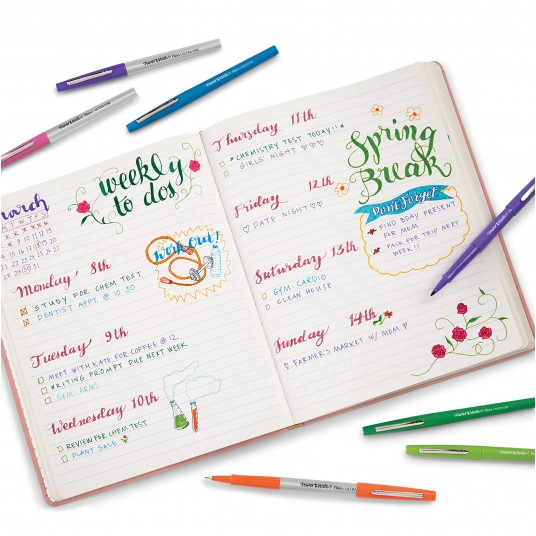 Paper Mate Flair
Paper Mate
Paper Mate
Paper Mate
weekly
to dos!
March
M T W T F S
Work Out!
Monday 8th
STUDY FOR CHEM TEST
DENTIST APPT. @ 10:30
Tuesday 9th
MEET WITH KATE FOR COFFEE @ 12
WRITING PROMPT DUE NEXT WEEK
GYM: ARMS
Wednesday 10th
REVIEW FOR CHEM TEST
PLANT SALE
Thursday 11th
*CHEMISTRY TEST TODAY!!*
GIRLS NIGHT ♡♡♡
Spring
Break
Friday 12th
♡DATE NIGHT♡♡
Don't Forget
FIND BDAY PRESENT
FOR MOM
PACK FOR TRIP NEXT
WEEK!!
Saturday 13th
GYM: CARDIO
CLEAN HOUSE
Sunday 14th
♡ FARMER'S MARKET W/ MOM ♡
Paper Mate
Paper Mate
Paper Mate Flair